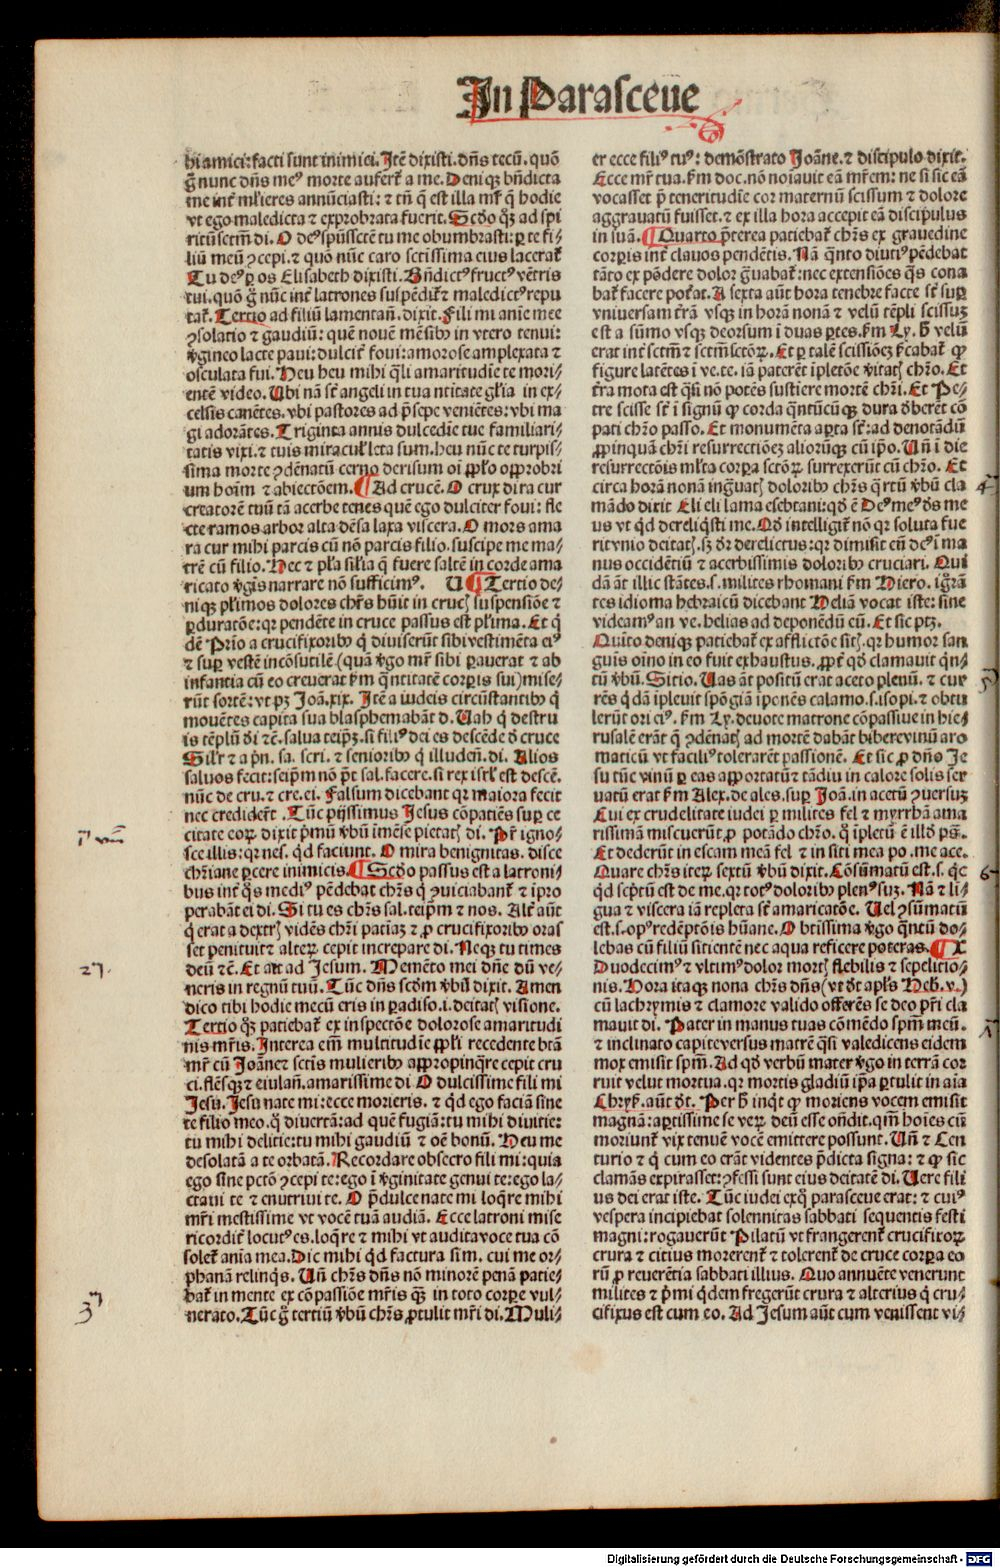 In Parasceue
bi amici: facti sunt inimici. Itē dixisti. dñs tecū. quō
g̃ nunc dñs meꝰ morte aufert᷑ a me. Deniqꝫ bñdicta
me int̃ mĺieres annūciasti: ⁊ tñ q̃ est illa mr̃ q̃ hodie
vt ego maledicta ⁊ exprobrata fuerit. Scďo q̊ꝫ ad spi
ritū sctm̄ di. O deꝰ spūssctē tu me obumbrasti: ꝑ te fi⸗
liū meū ꝯcepi. ⁊ quō nūc caro sctissima eius lacerat᷑
Tu deꝰ ꝑ os Elisabeth dixisti. Bñdictꝰ fructꝰ vētris
tui. quō g̃ nūc int̃ latrones suspēdit᷑ ⁊ maledictꝰ repu
tat᷑. Tertio ad filiū lamentañ. dixit. Fili mi anīe mee
ꝯsolatio ⁊ gaudiū: quē nouē mēsibꝰ in vtero tenui:
ỽgineo lacte paui: dulcit̃ foui: amorose amplexata ⁊
osculata fui. Heu heu mihi q̃li amaritudīe te mori⸗
entē video. Ubi nā st̃ angeli in tua ntitate gĺia in ex⸗
celsis canētes. vbi pastores ad p̃sepe veniētes: vbi ma
gi adorātes. Triginta annis dulcedīe tue familiari⸗
tatis vixi. ⁊ tuis miracuĺ leta sum. heu nūc te turpis⸗
sima morte ꝯdēnatū cerno derisum oī ꝓpĺo opprobri
um hoīm ⁊ abiectōem. ¶ Ad crucē. O crux dira cur
creatorē tuū tā acerbe tenes quē ego dulciter foui: fle
cte ramos arbor alta dēsa laxa viscera. O mors ama
ra cur mihi parcis cū nō parcis filio. suscipe me ma⸗
trē cū filio. Hec ⁊ pĺa siĺia q̃ fuere saltē in corde ama
ricato ỽgīs narrare nō sufficimꝰ. V ¶ Tertio de⸗
niqꝫ pĺimos dolores chr̃s hūit in crucꝭ suspensiōe ⁊
ꝑduratōe: qꝛ pendēte in cruce passus est pĺima. Et q̃
dē Prīo a crucifixoribꝰ q̃ diuiserūt sibi vestimēta eiꝰ
⁊ suꝑ vestē incōsutilē (quā ỽgo mr̃ sibi ꝑauerat ⁊ ab
infantia cū eo creuerat ẜm q̃ntitatē corꝑis sui) mise⸗
rūt sortē: vt pꝫ Joā. xix. Itē a iudeis circūstantibꝰ q̃
mouētes capita sua blasphemabāt d. Uah q̃ destru
is tēplū đi ⁊c̄. salua teip̄ꝫ. si filiꝰ dei es descēde đ cruce
Siĺr ⁊ a p̄n. sa. scri. ⁊ senioribꝰ q̃ illudeñ. di. Alios
saluos fecit: seip̄m nō p̄t sal. facere. si rex isrĺ est descē.
nūc de cru. ⁊ cre. ei. Falsum dicebant qꝛ maiora fecit
nec credider̃t. Tūc pijssimus Jesus cōpatiēs suꝑ ce
citate eoꝝ dixit p̃mū ỽbū īmēse pietatꝭ di. Pr̃ igno⸗
sce illis: qꝛ nes. q̃d faciunt. O mira benignitas. disce
chr̃iane ꝑcere inimicis. ¶ Scďo passus est a latroni⸗
bus int̃ q̊s mediꝰ pēdebat chr̃s q̃ ꝯuiciabant᷑ ⁊ ip̄ro
perabāt ei di. Si tu es chr̃s sal. teip̄m ⁊ nos. Alt̃ aūt
q̃ erat a dextrꝭ vidēs chr̃i patiaꝫ ⁊ ꝓ crucifixoribꝰ oras
set penituit ⁊ alteꝝ cepit increpare di. Neqꝫ tu times
deū ⁊c̄. Et ait ad Jesum. Memēto mei dñe dū ve⸗
neris in regnū tuū. Tūc dñs scďm ỽbū dixit. Amen
dico tibi hodie mecū eris in ꝑadiso. i. deitatꝭ visione.
Tertio q̊ꝫ patiebat᷑ ex inspectōe dolorose amaritudi
nis mr̃is. Interea eim̄ multitudīe ꝓpĺi recedente btā
mr̃ cū Joāne ⁊ sctis mulieribꝰ appropinq̃re cepit cru
ci. flēsqꝫ ⁊ eiulañ. amarissime di. O dulcissime fili mi
Jesu. Jesu nate mi: ecce morieris. ⁊ q̃d ego faciā sine
te filio meo. q̊ diuertā: ad quē fugiā: tu mihi diuitie:
tu mihi delitie: tu mihi gaudiū ⁊ oē bonū. Heu me
desolatā a te orbatā. Recordare obsecro fili mi: quia
ego sine pctō ꝯcepi te: ego ī ỽginitate genui te: ego la⸗
ctaui te ⁊ enutriui te. O p̃dulce nate mi loq̃re mihi
mr̃i mestissime vt vocē tuā audiā. Ecce latroni mise
ricordit̃ locutꝰ es. loq̃re ⁊ mihi vt audita voce tua cō
solet᷑ anīa mea. Dic mihi q̃d factura sim. cui me or⸗
phanā relinq̃s. Uñ chr̃s dñs nō minorē penā patie⸗
bat᷑ in mente ex cōpassiōe mr̃is qꝫ in toto corꝑe vul⸗
nerato. Tūc g̃ tertiū ỽbū chr̃s ꝓtulit mr̃i di. Muli⸗
er ecce filiꝰ tuꝰ: demōstrato Joāne. ⁊ discipulo dixit.
Ecce mr̃ tua. ẜm doc. nō noīauit eā mr̃em: ne si sic eā
vocasset p̃ teneritudīe cor maternū scissum ⁊ dolore
aggrauatū fuisset. ⁊ ex illa hora accepit eā discipulus
in suā. ¶ Quarto p̃terea patiebat᷑ chr̃s ex grauedine
corꝑis int̃ clauos pendētis. Nā q̃nto diutiꝰ pēdebat
tāto ex pōdere dolor g̃uabat᷑: nec extensiōes q̃s cona
bat᷑ facere pot̃at. A sexta aūt hora tenebre facte st̃ suꝑ
vniuersam tr̃rā vsqꝫ in horā nonā ⁊ velū tēpli scissuꝫ
est a sūmo vsqꝫ deorsum ī duas ꝑtes. ẜm Ly. ħ velū
erat int̃ sctm̄ ⁊ sctm̄ sctōꝝ. Et ꝑ talē scissiōeꝫ p̃cabat᷑ ꝙ
figure latētes ī ve. te. iā paterēt ipletōe ỽitatꝭ chr̃o. Et
tr̃ra mota est q̃si nō potēs sustiere mortē chr̃i. Et Pe⸗
tre scisse st̃ ī signū ꝙ corda q̃ntūcūqꝫ dura đberēt cō
pati chr̃o passo. Et monumēta aꝑta st̃: ad denotādū
ꝓpinquā chr̃i resurrectiōeꝫ aliorūqꝫ cū ip̄o. Uñ ī die
resurrectōis mĺta corꝑa sctōꝝ surrexerūt cū chr̃o. Et
circa horā nonā ing̃uātꝭ doloribꝰ chr̃s q̃rtū ỽbū cla
mādo dixit Eli eli lama esebtani: qđ ē Deꝰ meꝰ đs me
us vt q̃d dereliq̃sti me. Qđ intelligit᷑ nō qꝛ soluta fue
rit vnio deitatꝭ. sꝫ đr derelictus: qꝛ dimisit cū deꝰ ī ma
nus occidētiū ⁊ acerbissimis doloribꝰ cruciari. Qui
dā āt illic stātes. s. milites rhomani ẜm Hiero. ig̃rā
tes idioma hebraicū dicebant Heliā vocat iste: sine
videamꝰ an ve. helias ad deponēdū cū. Et sic ptꝫ.
Quīto deniqꝫ patiebat᷑ ex afflictōe sitꝭ. qꝛ humor san
guis oīno in eo fuit exhaustus. ꝓpt̃ qđ clamauit q̃n⸗
tū ỽbū. Sitio. Uas āt positū erat aceto plenū. ⁊ cur
rēs q̃dā ipleuit spōgiā iponēs calamo. s. isopi. ⁊ obtu
lerūt ori eiꝰ. ẜm Ly. deuote matrone cōpassiue in hie⸗
rusalē erāt q̃ ꝯdēnatꝭ ad mortē dabāt bibere vinū aro
maticū vt faciliꝰ tolerarēt passionē. Et sic ꝓ dño Je
su tūc vinū ꝑ eas apportatū ⁊ tādiu in calore solis ser
uatū erat ẜm Alex. de ales. suꝑ Joā. in acetū ꝯuersuꝫ
Cui ex crudelitate iudei ꝑ milites fel ⁊ myrrhā ama
rissimā miscuerūt ꝓ potādo chr̃o. q̊ ipletū ē illđ ps̄.
Et dederūt in escam meā fel ⁊ in siti mea po. me ace.
Quare chr̃s iteꝝ sextū ỽbū dixit. Cōsūmatū est. s. q̃c
q̃d scp̄tū est de me. qꝛ totꝰ doloribꝰ plenꝰ suꝫ. Nā ⁊ li⸗
gua ⁊ viscera iā repleta st̃ amaricatōe. Uel ꝯsūmatū
est. s. opꝰ redēptōis hūane. O btissima ỽgo q̃ntū do⸗
lebas cū filiū sitientē nec aqua reficere poteras. ¶ X
Duodecimꝰ ⁊ vltimꝰ dolor mortꝭ flebilis ⁊ sepelitio⸗
nis. Hora itaqꝫ nona chr̃s dñs (vt đt apĺs Heb. v.)
cū lachrymis ⁊ clamore valido offerēs se deo pr̃i cla
mauit di. Pater in manus tuas cōmēdo spm̄ meū.
⁊ inclinato capite versus matrē q̃si valedicens eidem
mox emisit spm̄. Ad qđ verbū mater ỽgo in terrā cor
ruit velut mortua. qꝛ mortis gladiū ip̄a ꝑtulit in aīa
Chrys. aūt đt. Per ħ inq̃t ꝙ moriens vocem emisit
magnā: aꝑtissime se veꝝ deū esse oñdit. qm̄ hoīes cū
moriunt᷑ vix tenuē vocē emittere possunt. Uñ ⁊ Cen
turio ⁊ q̃ cum eo erāt videntes p̃dicta signa: ⁊ ꝙ sic
clamās expirasset: ꝯfessi sunt eius deitatē di. Uere fili
us dei erat iste. Tūc iudei exq̊ parasceue erat: ⁊ cuiꝰ
vespera incipiebat solennitas sabbati sequentis festi
magni: rogauerūt Pilatū vt frangerent᷑ crucifixoꝝ
crura ⁊ citius morerent᷑ ⁊ tolerent᷑ de cruce corꝑa eo
rū ꝓ reuerētia sabbati illius. Quo annuēte venerunt
milites ⁊ p̃mi q̃dem fregerūt crura ⁊ alterius q̃ cru⸗
cifixus est cum eo. Ad Jesum aūt cum venissent vi⸗
Digitalisierung gefördert durch die Deutsche Forschungsgemeinschaft - DFG